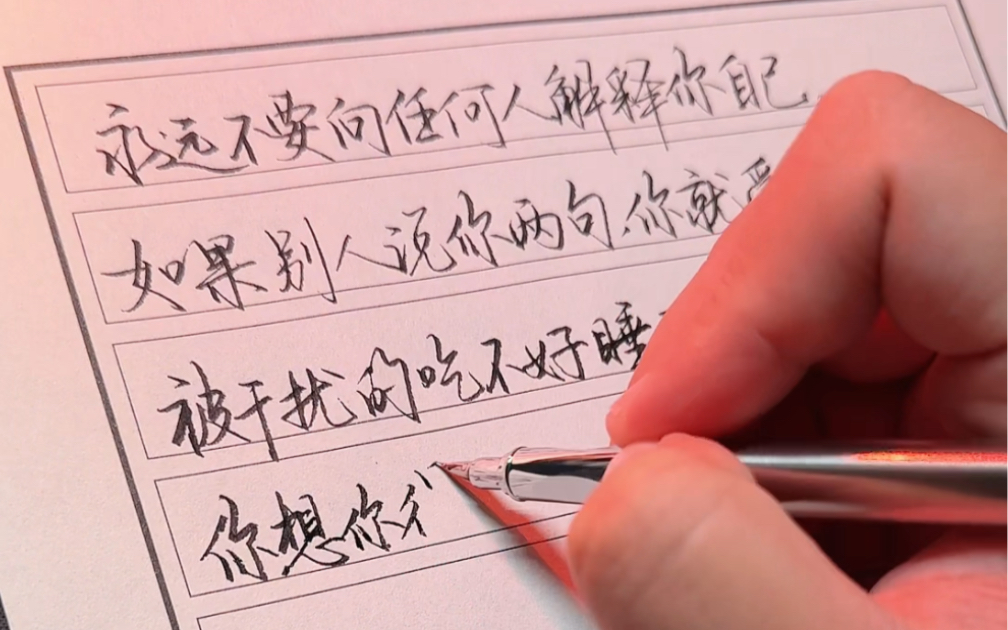 永远不要向任何人解释你自己
如果别人说你两句,你就
被干扰的吃不好睡
你想你